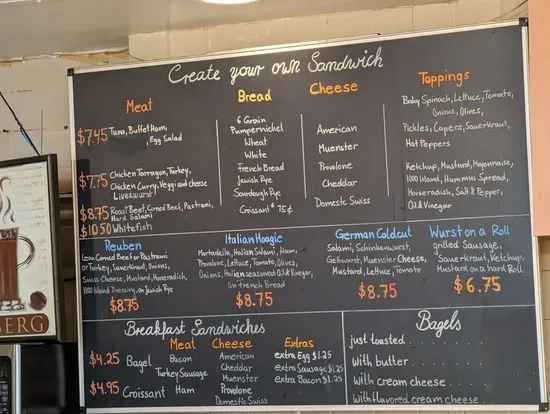 Create your own Sandwich
Meat
$7.45 Tuna, Buffet Ham,
Egg Salad
$7.75 Chicken Tarragon, Turkey,
Chicken Curry, Veggi and cheese
Liverwurst
$8.75 Roast Beef, Corned Beef, Pastrami,
Hard Salami
$10.50 Whitefish
Bread
6 Grain
Pumpernickel
Wheat
White
French Bread
Jewish Rye
Sourdough Rye
Croissant $ 75¢
Cheese
American
Muenster
Provolone
Cheddar
Domestic Swiss
Toppings
Baby Spinach, Lettuce, Tomato,
Onions, Olives,
Pickles, Capers, Sauerkraut,
Hot Peppers
Ketchup, Mustard, Mayonnaise,
1000 Island, Hummus Spread,
Horseradish, Salt & Pepper,
Oil & Vinegar
Reuben
Lean Corned Beef or Pastrami
or Turkey, Sauerkraut, Onions,
Swiss Cheese, Mustard, Horseradish,
1000 Island Dressing, on Jewish Rye
$8.75
Italian Hoagie
Mortadella, Italian Salami, Ham,
Provolone, Lettuce, Tomato, Olives,
Onions, Italian seasoned Oil & Vinegar,
on french Bread
$8.75
German Coldcut
Salami, Schinkenwurst,
Gelbwurst, Muenster Cheese,
Mustard, Lettuce, Tomato
$8.75
Wurst on a Roll
grilled Sausage,
Sauerkraut, Ketchup,
Mustard on a hard Roll
$6.75
Breakfast Sandwiches
Meat Cheese Extras
$4.25 Bagel
$4.95 Croissant
Bacon
Turkey Sausage
Ham
American
Cheddar
Muenster
Provolone
Domestic Swiss
extra Egg $1.25
extra Sausage $1.25
extra Bacon $1.25
Bagels
just toasted . . . . . . . . .
with butter . . . . . . . . .
with cream cheese . . . . . .
with flavored cream cheese . . . .
BERG